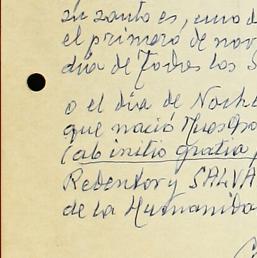 en santo es, uno d
el primero de nov
día de Todos los S
o el día de Noche
que nació Nuestro
(ab initio gratia,
Redentor y SALVA
de la Humanida